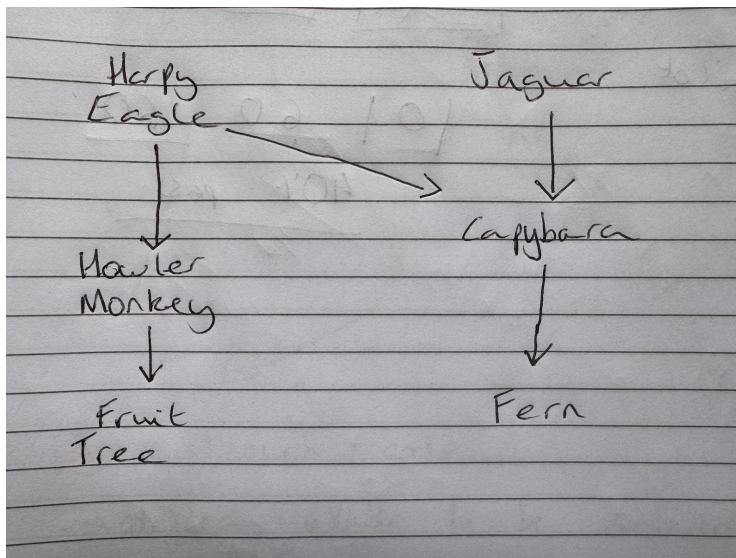 Harpy
Eagle
Jaguar
Capybara
Howler
Monkey
Fruit
Tree
Fern